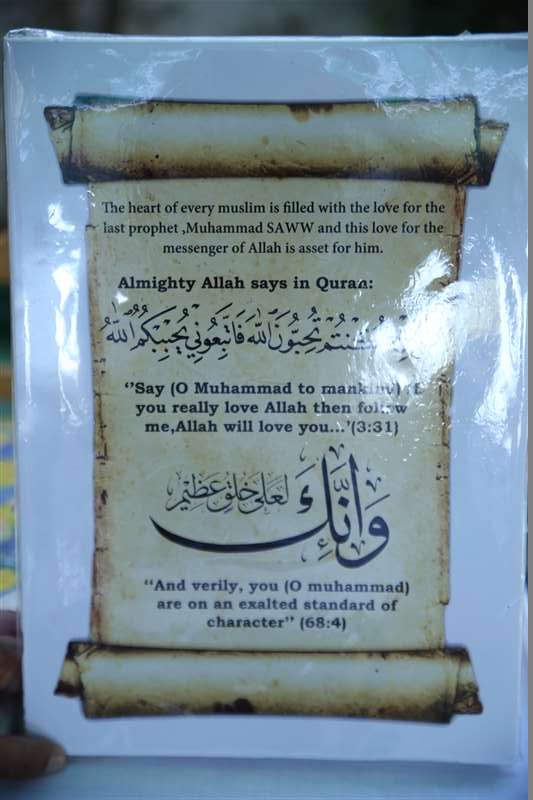 The heart of every muslim is filled with the love for the
last prophet ,Muhammad SAWW and this love for the
messenger of Allah is asset for him.
Almighty Allah says in Quran:
كُنْتُمْ تُحِبُّونَ اللَّهَ فَاتَّبِعُونِي يُحْبِبْكُمُ اللَّهُ
‘’Say (O Muhammad to mankind) if
you really love Allah then follow
me,Allah will love you...’(3:31)
وَإِنَّكَ لَعَلَىٰ خُلُقٍ عَظِيمٍ
‘‘And verily, you (O muhammad)
are on an exalted standard of
character’’ (68:4)